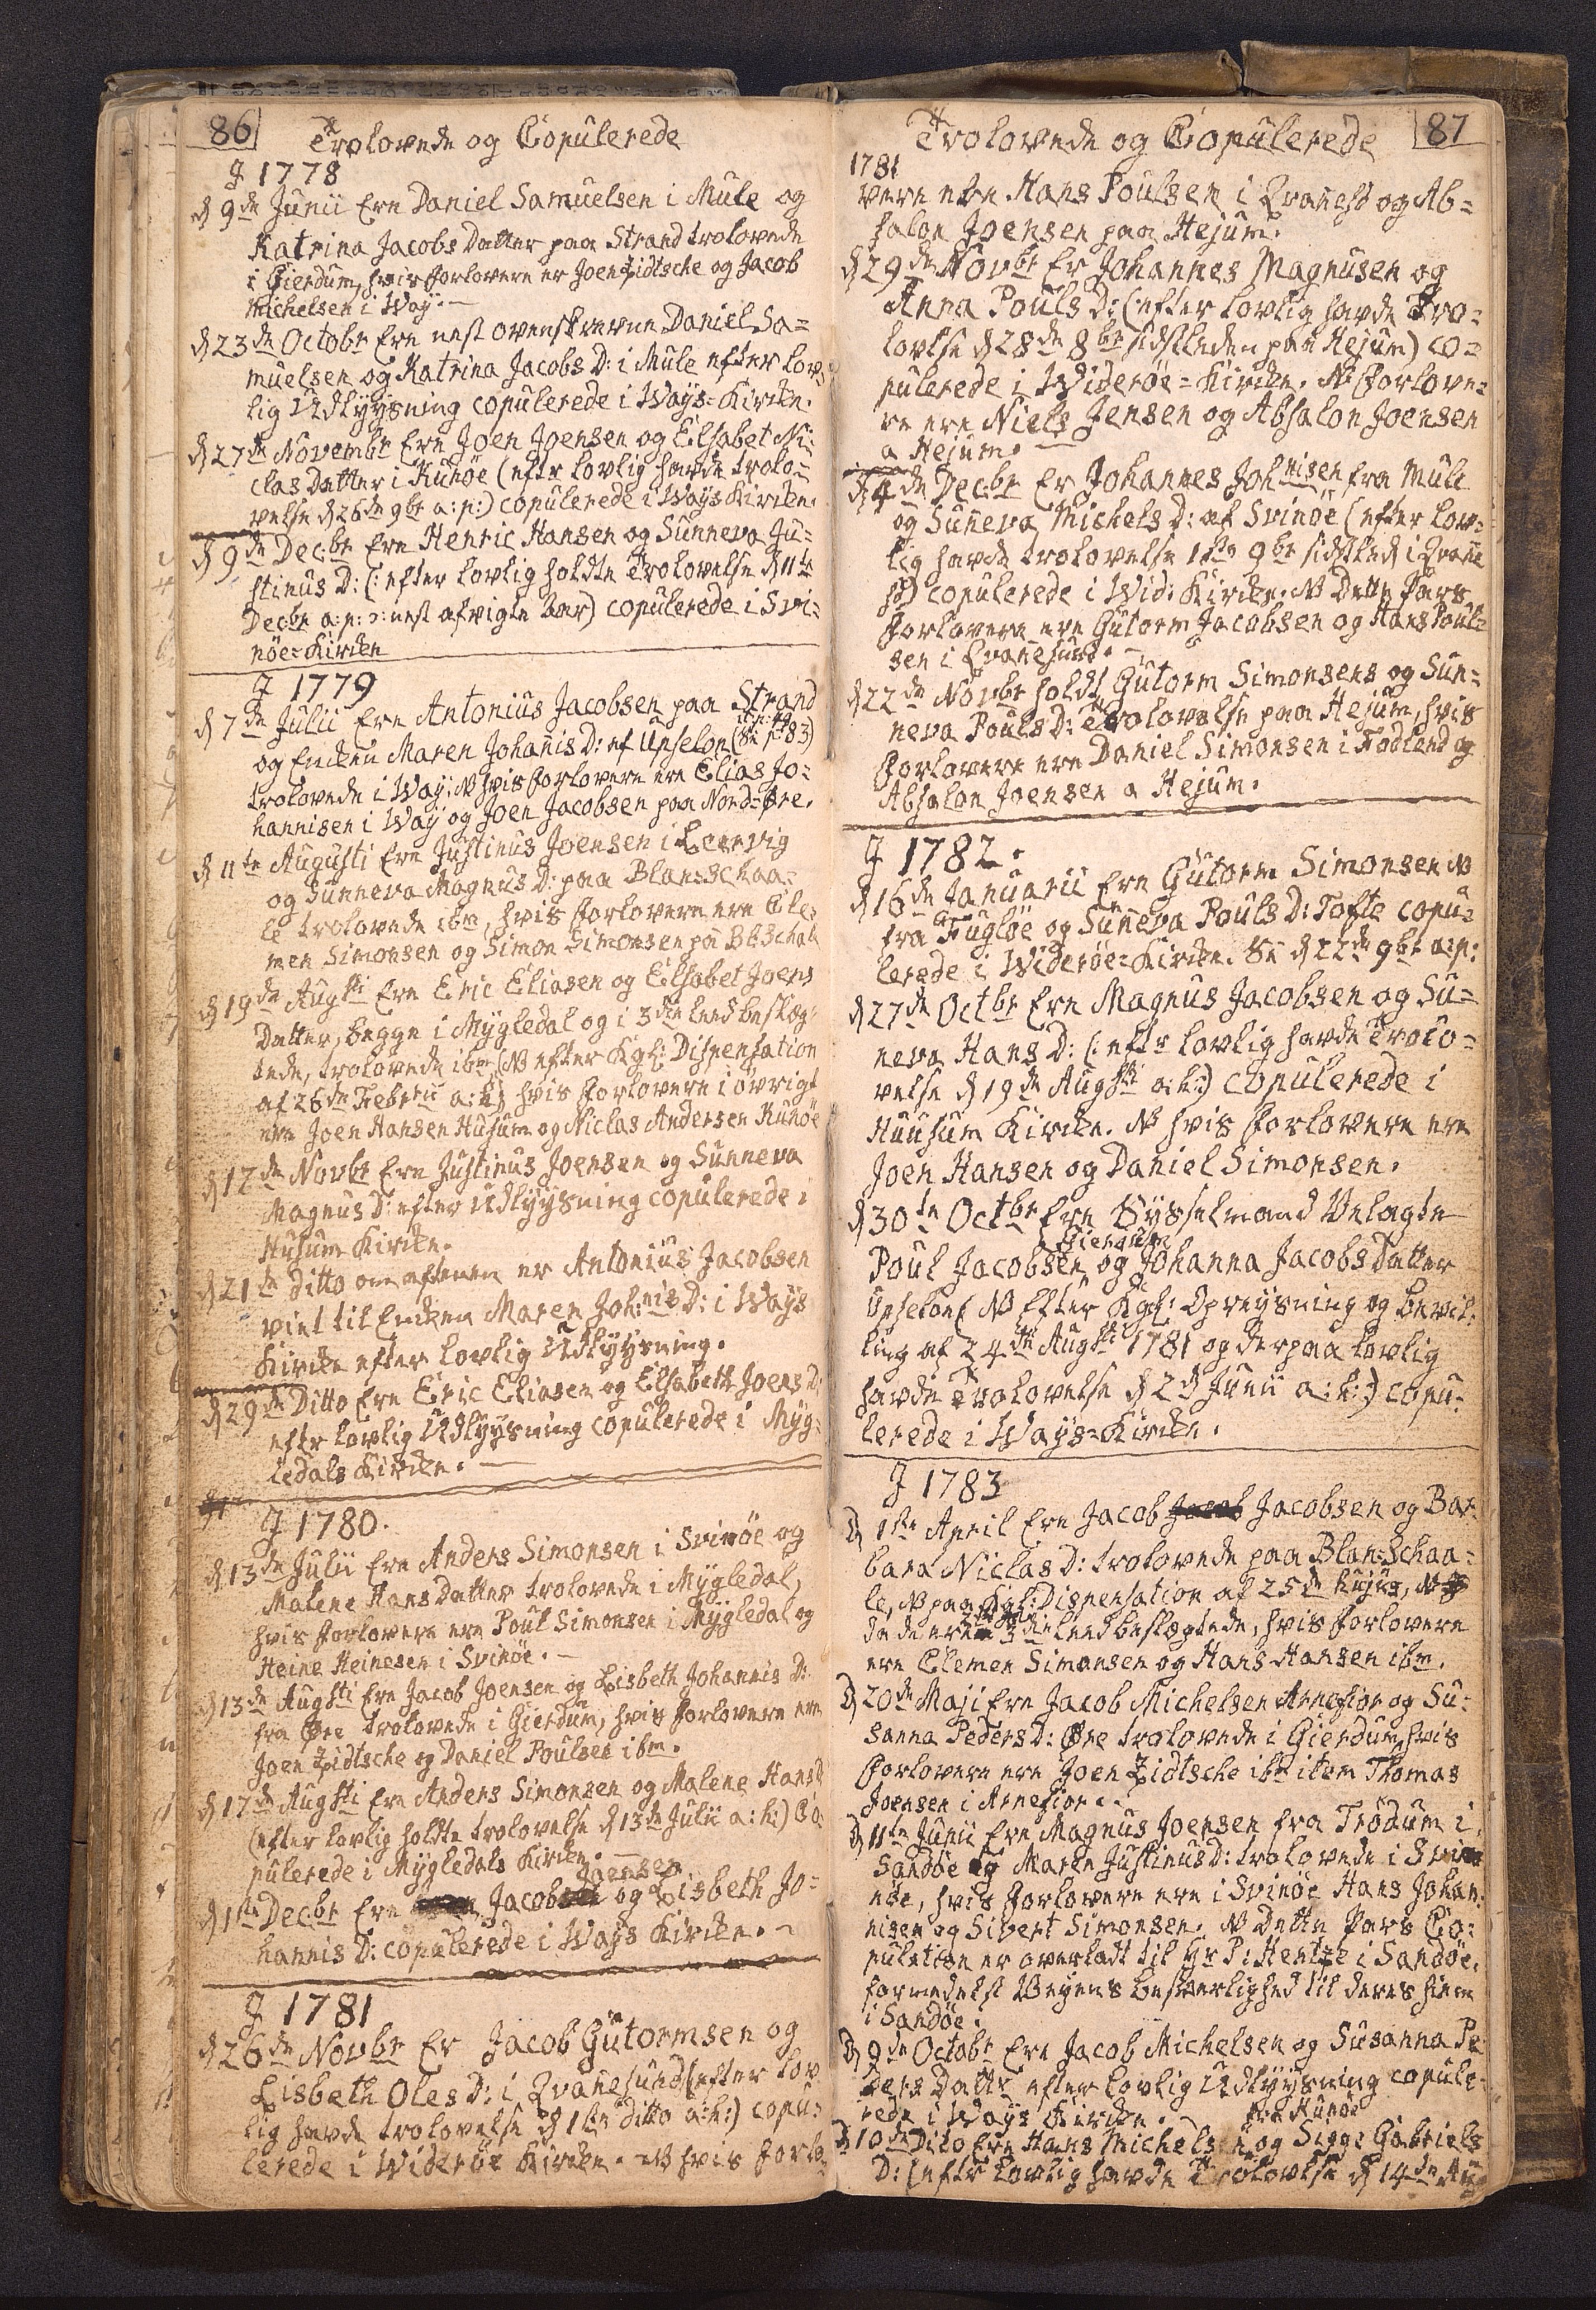 86
Trolovede og Copulerede
J 1778
d 9de Junii Ere Daniel Samuelsen i Mule og
Katrina Jacobs Datter paa Strand trolovede
i Gierdum, hvis Forlovere er Joen Zidtsche og Jacob
Michelsen i Way. —
d 23de Octobr Ere nest ovenskrevne Daniel Sa=
muelsen og Katrina Jacobs D: i Mule efter lov=
lig Udlyysning copulerede i Ways=Kirke.
d 27de Novembr Ere Joen Joensen og Elsabet Ni=
clas Datter i Kunöe (efter lovlig havde trolo=
velse d 26de 9br a:p:) copulerede i Ways Kirke.
d 9de Decbr Ere Henric Hansen og Sunneva Ju=
stinus D: (: efter lovlig holdte Trolovelse d 11te
Decbr a:p: ɔ: nest afvigte Aar) copulerede i Svi=
nöe=Kirken
J 1779
d 7de Julii Ere Antonius Jacobsen paa Strand
og Enken Maren Johanis D: af Upselon (Se p 83)
trolovede i Way. NB hvis Forlovere ere Elias Jo=
hannisen i Way og Joen Jacobsen paa Nord=Øre.
d 11te Augusti Ere Justinus Joensen i Leervig
og Sunneva Magnus D: paa Blansschaa=
le trolovede ibm, hvis Forlovere ere Cle=
men Simonsen og Simon Simonsen på Bl:Schaale
d 19de Augsti Ere Eric Eliasen og Elsabet Joens
Datter, begge i Mygledal og i 3die Leed beslæg=
tede, trolovede ibm (NB efter Kgl: Dispensation
af 26de Febrii a:h:) hvis Forlovere i övrigt
ere Joen Hansen Husum og Niclas Andersen Kunöe
d 17de Novbr Ere Justinus Joensen og Sunneva
Magnus D: efter Udlyysning copulerede i
Husum Kirke.
d 21te ditto om aftenen er Antonius Jacobsen
viet til Enken Maren Joh:nis D: i Ways
Kirke efter lovlig Udlyysning.
d 29de Ditto Ere Eric Eliasen og Elsabeth Joens D:
efter lovlig Udlyysning copulerede i Myg=
ledals Kirke. —
J 1780.
d 13de Julii Ere Anders Simonsen i Svinöe og
Malene Hans Datter trolovede i Mygledal,
hvis Forlovere ere Poul Simonsen i Mygledal og
Heine Heinesen i Svinöe. —
d 13de Augsti Ere Jacob Joensen og Lisbeth Johannis D:
fra Øre trolovede i Gierdum, hvis Forlovere ere
Joen Zidtsche og Daniel Poulsen ibm.
d 17de Augsti Ere Anders Simonsen og Malene Hans D
(efter lovlig holdte trolovelse d 13de Julii a:h:) Co=
pulerede i Mygledals Kirke. —
Joensen
d 1ste Decbr Ere Jacob og Lisbeth Jo=
hannis D: copulerede i Ways Kirke. ~
J 1781
d 26de Novbr Er Jacob Gutormsen og
Lisbeth Oles D: i Qvanesund (efter lov=
lig havde trolovelse d 1ste ditto a:h:) copu=
lerede i Wideröe Kirke. NB hvis Forlo=
87
Trolovede og Copulerede
1781
vere ere Hans Poulsen i Qvanesd og Ab=
salon Joensen paa Hejum.
d 29de Novbr Er Johannes Magnusen og
Anna Pouls D: (: efter lovlig havde Tro=
lovlse d 28de 8br sidstleden paa Hejum) co=
pulerede i Wideröe=Kirke. NB Forlove=
re ere Niels Jensen og Absalon Joensen
a Hejum.
d 4de Decbr Er Johannes Johnisen fra Mule
og Suneva Michels D: af Svinöe (efter lov=
lig havde trolovelse 1ste 9br sidstled i Qvane
sd) copulerede i Wid: Kirke. NB Dette Pars
Forlovere ere Gutorm Jacobsen og Hans Poul=
sen i Qvanesund. —
d 22de Novbr holdt Gutorm Simonsens og Sun=
neva Pouls D: Trolovelse paa Hejum, hvis
Forlovere ere Daniel Simonsen i Todlend og
Absalon Joensen a Hejum.
J 1782.
d 16de Januarii Ere Gutorm Simonsen NB
fra Fuglöe og Suneva Pouls D: Tofte copu=
lerede i Wideröe=Kirke. Se d 22de 9br a:p:
d 27de Octbr Ere Magnus Jacobsen og Su=
neva Hans D: (: efter lovlig havde Trolo=
velse d 19de Augsti a:h:) copulerede i
Huusum Kirke. NB hvis Forlovere ere
Joen Hansen og Daniel Simonsen.
d 30te Octbr Ere Sysselmand Velagte
Gierdum
Poul Jacobsen og Johanna Jacobs Datter
Upselon (NB Efter Kgl: Opreysning og bevil=
ling af 24de Augsti 1781 og derpaa lovlig
havde Trolovelse d 2d Junii a:h:) copu=
lerede i Ways=Kirke.
J 1783
d 1ste April Ere Jacob Jacob Jacobsen og Bar=
bara Niclas D: trolovede paa Blan=Schaa=
le, NB paa Kgl: Dispensation af 25de hujus, NB
da de ere 3die Leed beslægtede, hvis Forlovere
ere Clemen Simonsen og Hans Hansen ibm.
d 20de Maji Ere Jacob Michelsen Arnefior og Su=
sanna Peders D: Øre trolovede i Gierdum, hvis
Forlovere ere Joen Zidtsche ibm item Thomas
Joensen i Arnefior. ~
d 11te Junii Ere Magnus Joensen fra Trödum i
Sandöe og Maren Justinus D: trolovede i Svi
nöe, hvis Forlovere ere i Svinöe Hans Johan=
nisen og Sivert Simonsen. NB Dette Pars Co=
pulation er overladt til Hr P: Hentze i Sandöe,
formedelst Veyens besværlighed til deres hiem
i Sandöe.
d 9de Octobr Ere Jacob Michelsen og Susanna Pe=
ders Datter efter lovlig Udlyysning copule=
rede i Ways Kirke. ~
fra Kunöe
d 10de Dito Ere Hans Michelsen og Sigge Gabriels
D: (efter lovlig havde Trolovlse d 14de Au